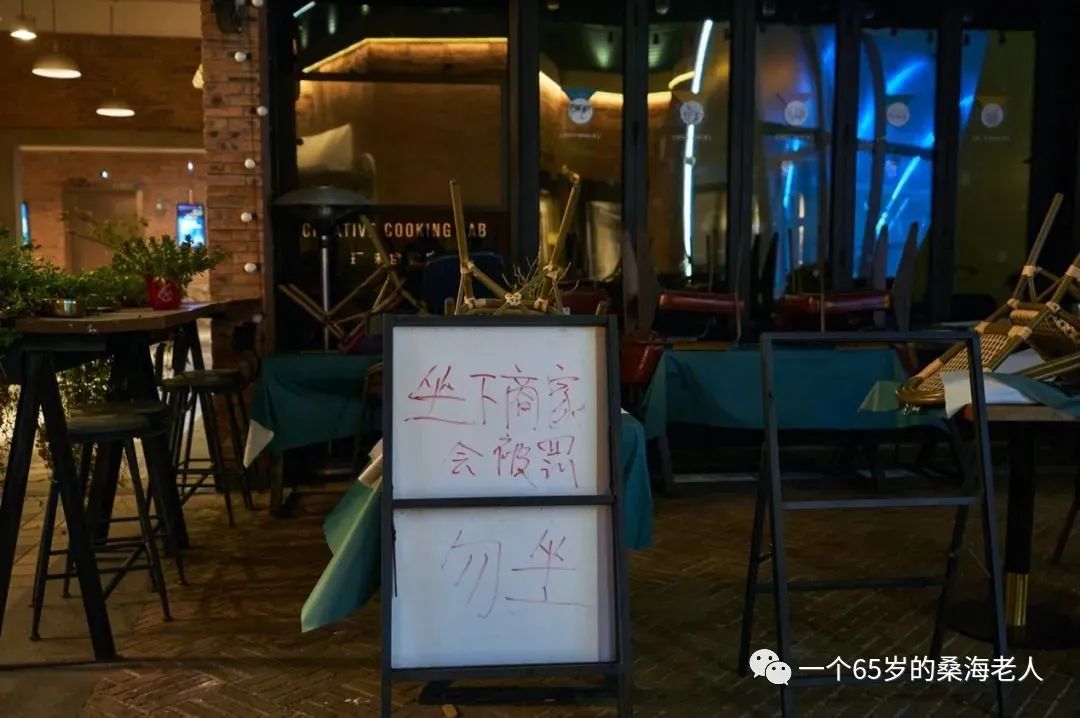 CREATIVE COOKING LAB
坐下商家
会被罚
勿坐
一个65岁的桑海老人